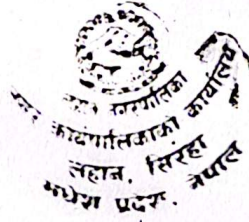 लहान नगरपालिका
नगर कार्यपालिकाको कार्यालय
लहान, सिरहा
मधेश प्रदेश, नेपाल